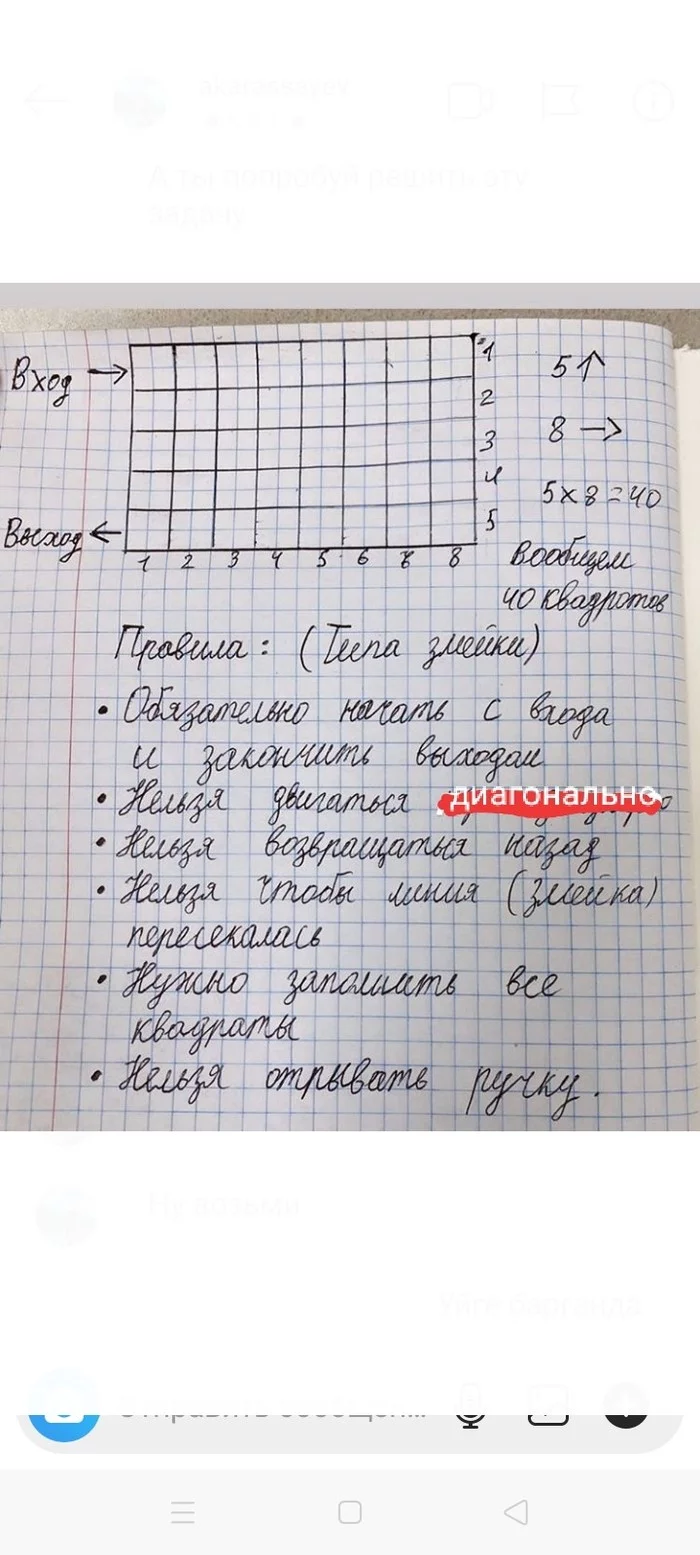 akarassayev
А ты попробуй решить эту
задачу
Вход
1
5↑
2
8 →
3
4
5х8=40
5
Выход
1 2 3 4 5 6 7 8
Вообщем
40 квадротов
Правила: (Типа змейки)
• Обязательно начать с входа
и закончить выходом
• Нельзя двигаться диагонально
• Нельзя возвращаться назад
• Нельзя чтобы линия (змейка)
пересекалась
• Нужно заполнить все
квадраты
• Нельзя отрывать ручку.
Ну возьми
Уйге барганда
Отправить сообщен...